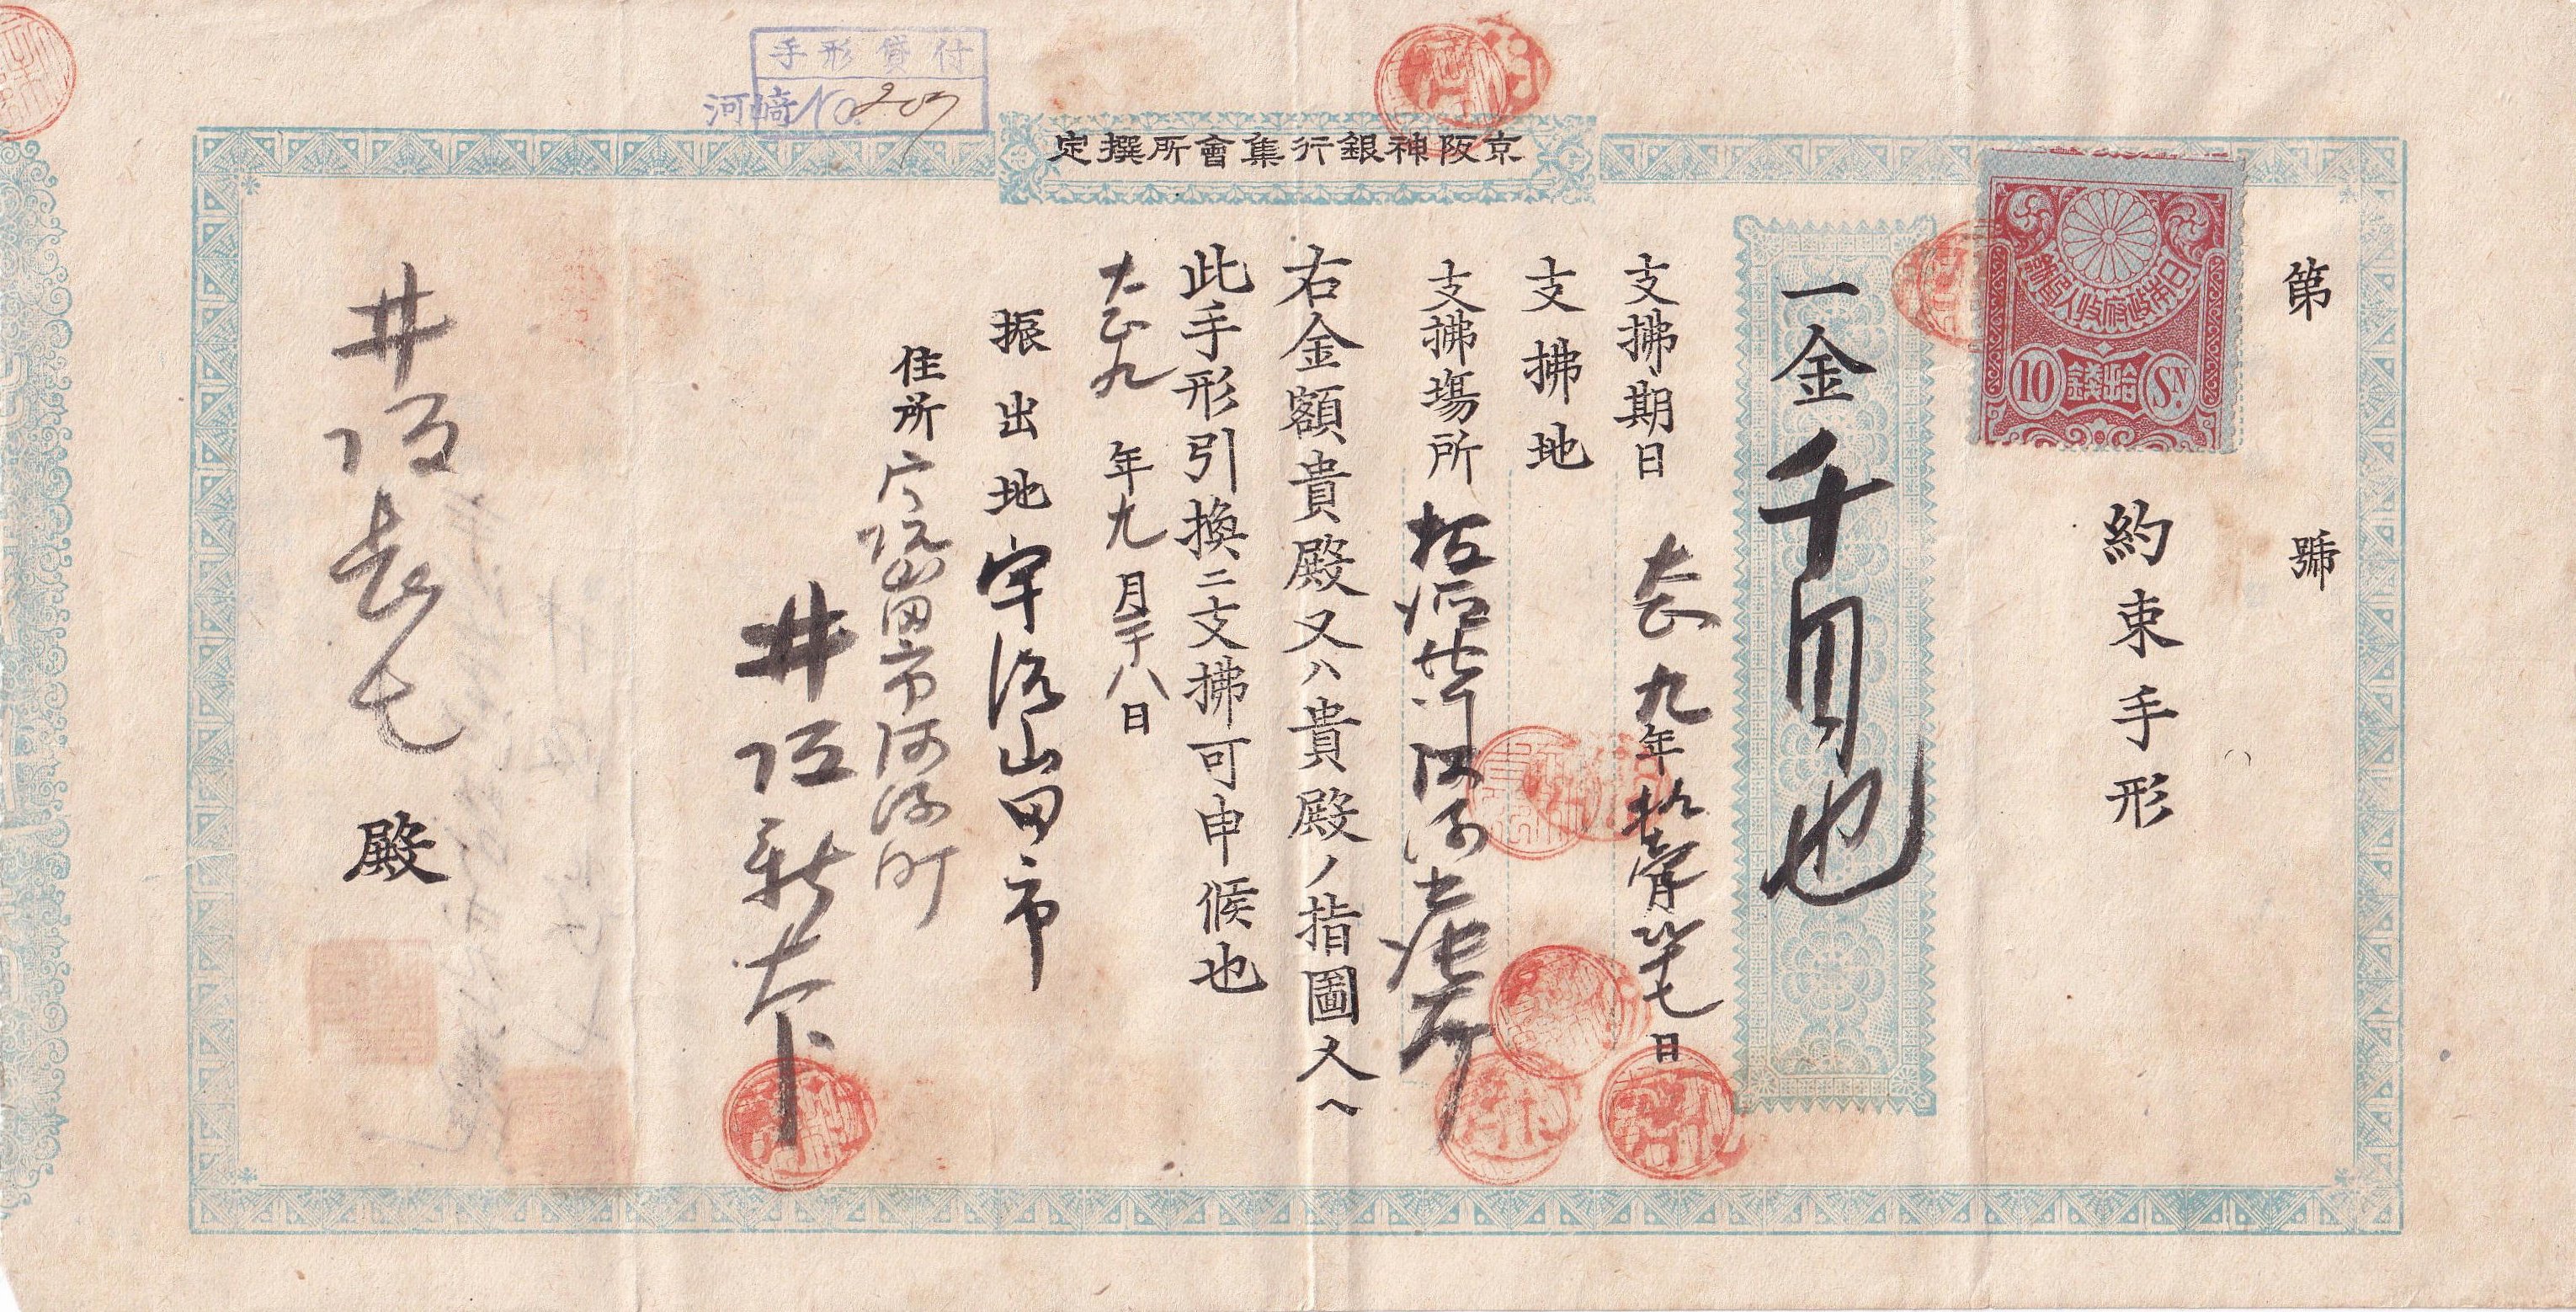 手形貸付
河崎No.207
京阪神銀行集會所撰定
第 號
約束手形
日本帝國政府収入印紙
10 拾錢 SN.
一金千円也
支拂期日 大正九年拾壹月廿七日
支拂地
支拂場所
右金額貴殿又ハ貴殿ノ指圖人ヘ
此手形引換ニ支拂可申候也
大正九年九月廿八日
振出地 宇治山田市
住所 宇治山田市河崎町
井坂
井坂長七殿